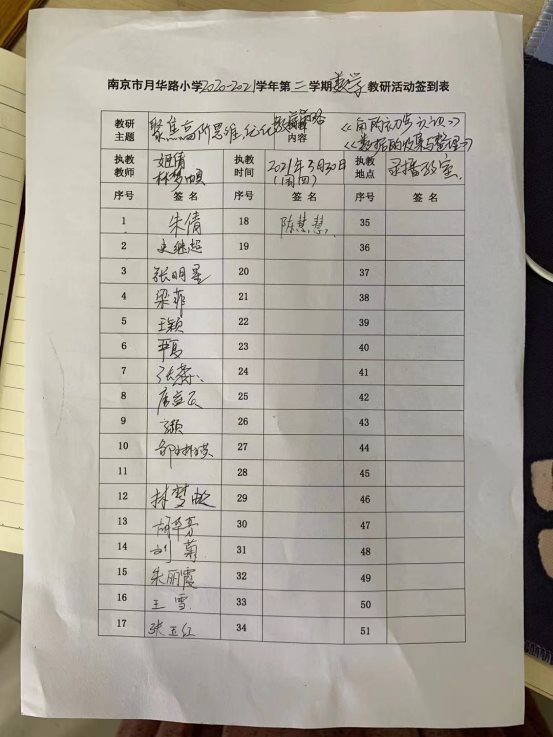 南京市月华路小学2020-2021学年第二学期数学教研活动签到表
教研主题 聚焦高阶思维,优化教学策略 执教内容 《角的初步认识》
《数据的收集与整理》
执教教师 林梦 执教时间 2021年3月30日 执教地点 录播教室
(周四)
序号 签名 序号 签名 序号 签名
1 朱倩 18 陈慧慧 35
2 史继超 19 36
3 张明星 20 37
4 梁菲 21 38
5 王颖 22 39
6 23 40
7 张蕊 24 41
8 25 42
9 26 43
10 27 44
11 28 45
12 林梦 29 46
13 胡华芳 30 47
14 刘菊 31 48
15 朱丽霞 32 49
16 王雪 33 50
17 张玉红 34 51